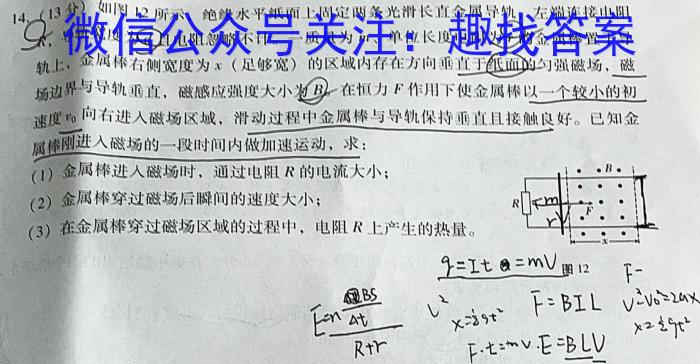 14.(13分) 如图12所示,绝缘水平纸面上固定两条光滑长直金属导轨,左端连接电阻
微信公众号关注:趣找答案
轨上,金属棒右侧宽度为x(足够宽)的区域内存在方向垂直于纸面的匀强磁场,磁
场边界与导轨垂直,磁感应强度大小为B。在恒力F作用下使金属棒以一个较小的初
速度v₀向右进入磁场区域,滑动过程中金属棒与导轨保持垂直且接触良好。已知金
属棒刚进入磁场的一段时间内做加速运动,求:
(1)金属棒进入磁场时,通过电阻R的电流大小;
(2)金属棒穿过磁场后瞬间的速度大小;
(3)在金属棒穿过磁场区域的过程中,电阻R上产生的热量。
B
R
m
r
F
x
图12
q=It
=mV
E=n BS/Δt
R+r
V²
x=½gt²
F=BIL
F·t=mv
E=BLV
F-
V²-V₀²=2ax
x=½gt²